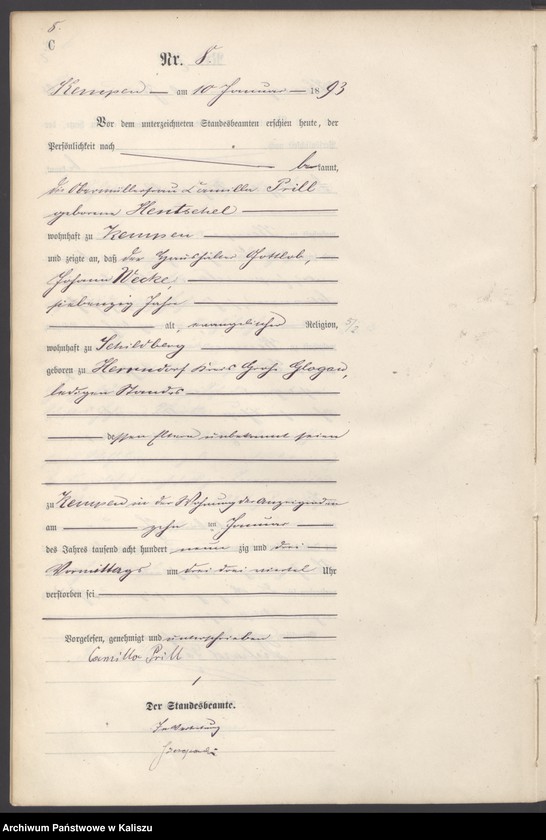 8.
C
Nr. 8.
Kempen am 10 Januar 1893
Vor dem unterzeichneten Standesbeamten erschien heute, der
Persönlichkeit nach
bekannt,
die Obermüllerfrau Camilla Prill
geborene Hentschel
wohnhaft zu Kempen
und zeigte an, daß der Haushälter Gottlob,
Johann Wecke,
siebenzig Jahr
alt, evangelischer Religion,
wohnhaft zu Schildberg
geboren zu Herrndorf Kreis Groß Glogau,
ledigen Standes
dessen Eltern unbekannt seien
zu Kempen in der Wohnung der Anzeigenden
am zehn ten Januar
des Jahres tausend acht hundert neun zig und drei
Vormittags um drei drei viertel Uhr
verstorben sei
Vorgelesen, genehmigt und unterschrieben
Camilla Prill
Der Standesbeamte.
In Vertretung
Archiwum Państwowe w Kaliszu